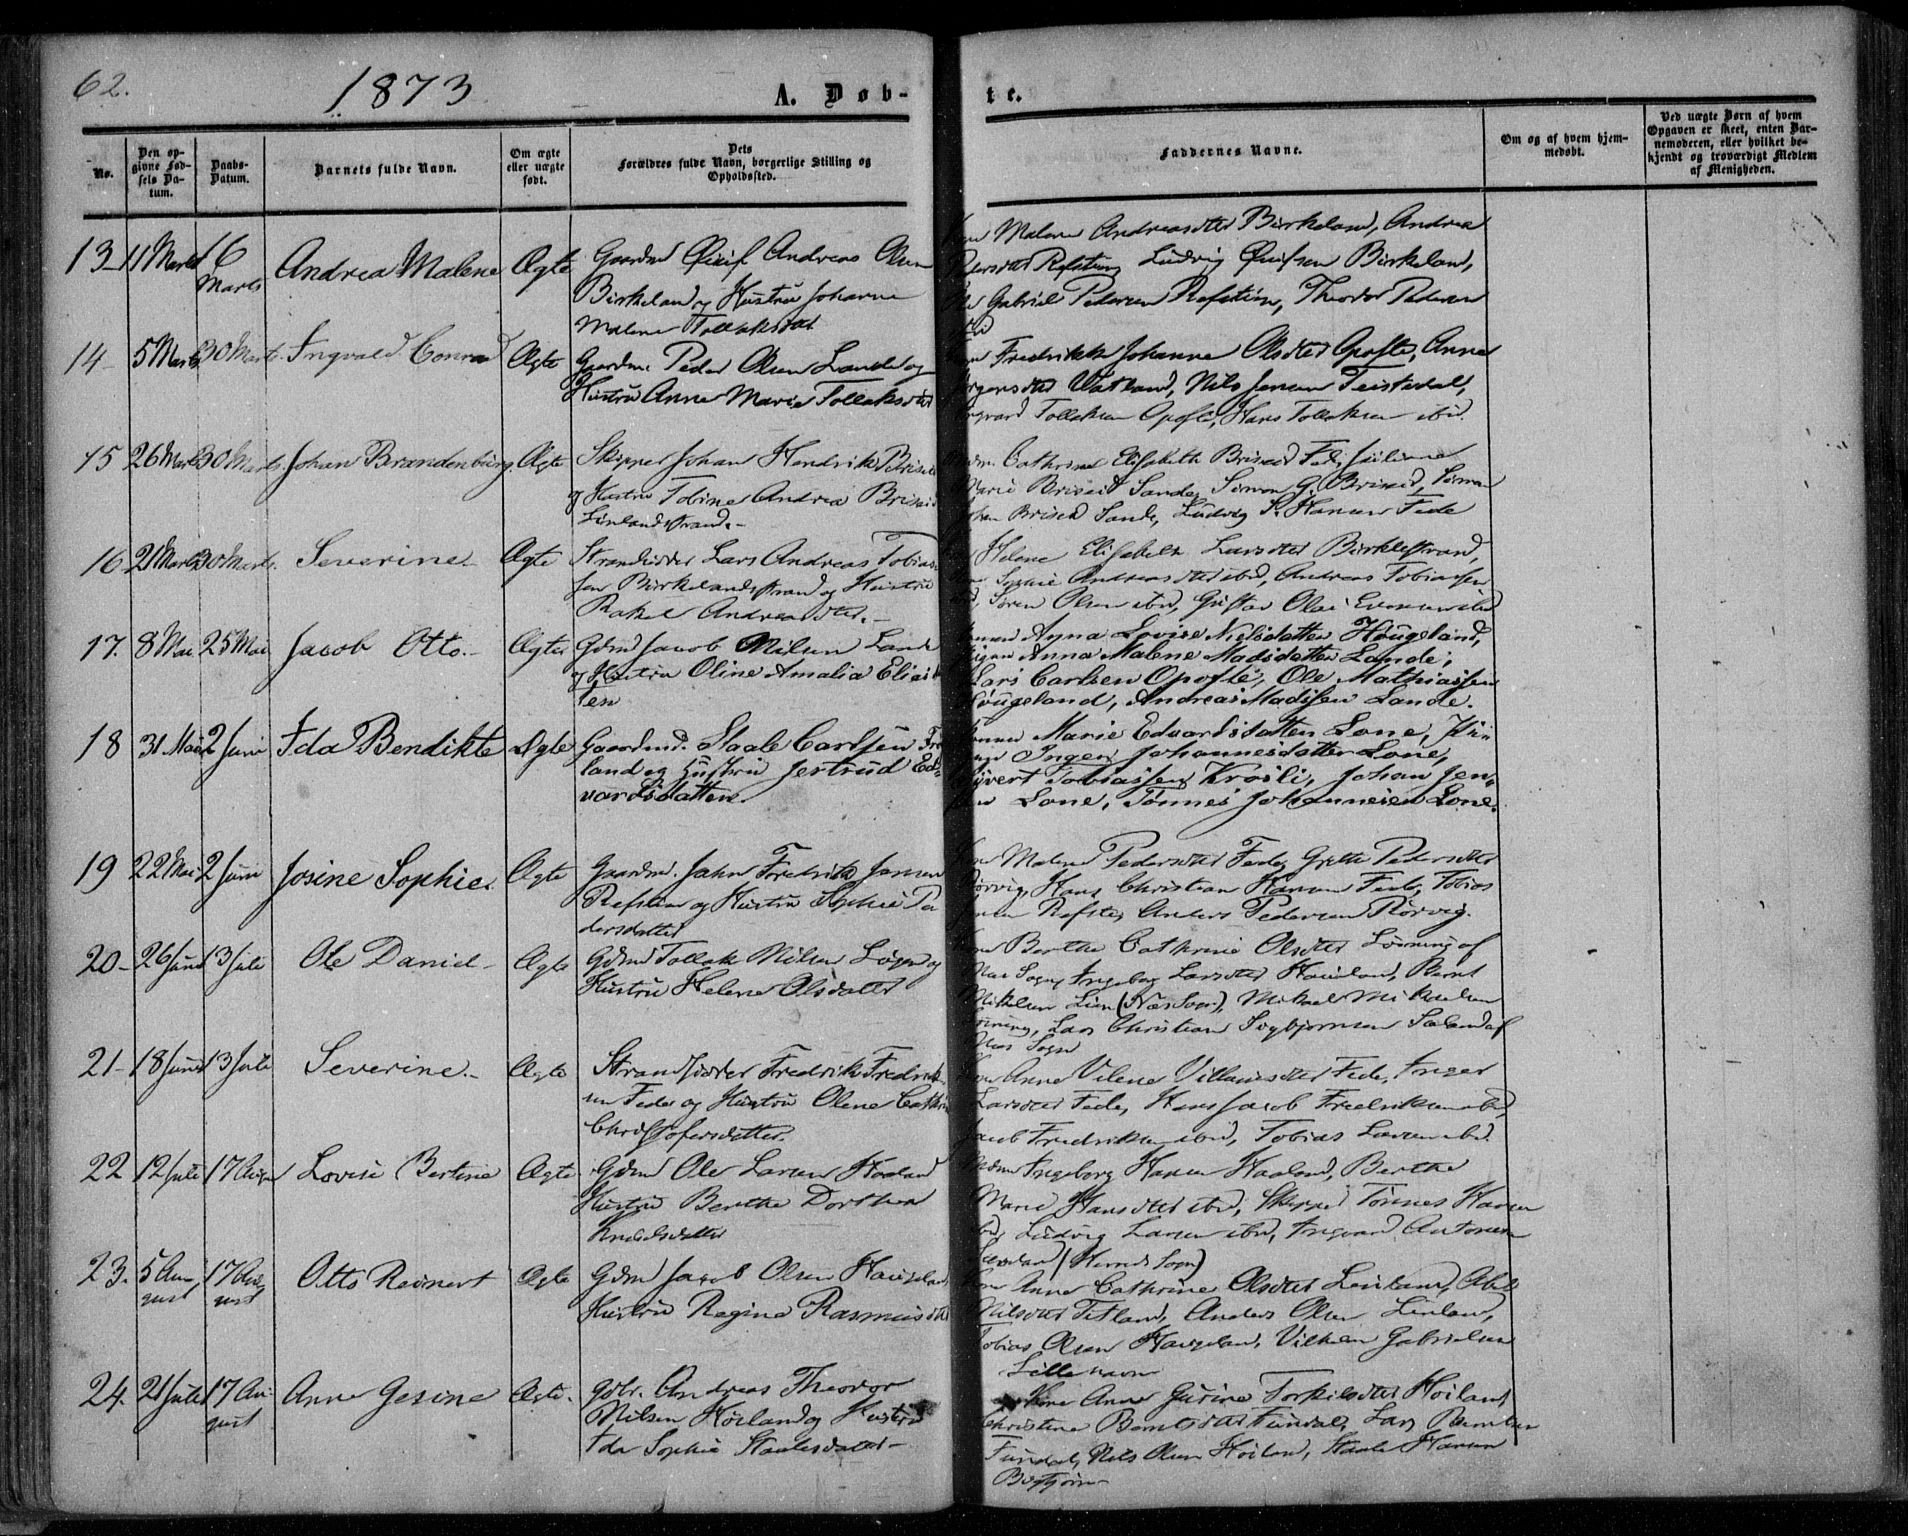 62.
1873
A. Døb-
te.
No.
Den op-
givne Fød-
sels Da-
tum.
Daabs-
Datum.
Barnets fulde Navn.
Om ægte
eller uægte
født.
Dets
Forældres fulde Navn, borgerlige Stilling og
Opholdssted.
Faddernes Navne.
Om og af hvem hjem-
medøbt.
Ved uægte Børn af hvem
Opgaven er skeet, enten Bar-
nemoderen, eller hvilket be-
kjendt og troværdigt Medlem
af Menigheden.
13 11 Marts 16
Marts
Andrea Malene
Ægte
Gaardmd Andreas Olsen
Birkeland og Hustru Johanne
Malene Tollaksdtr
Malene Andreasdtr Birkeland, Andrea
Ludvig Birkeland,
Gabriel Pedersen Refsti, Theodor Pedersen
14 5 Marts 30 Marts Ingvald Conrad Ægte
Gaardm. Peder Olsen Lande og
Hustru Anne Marie Tollaksdtr
Fredrikke Johanne Olsdtr Opofte, Anne
Vatland, Nils Jensen Teistedal,
Tollaksen Opofte, Hans Tollaksen ibid.
15 26 Marts 30 Marts Johan Brandenburg Ægte
Skipper Johan Hendrik Briseid
og Hustru Tobine Andrea Briseid
Linlandsstrand.
Cathrine Elisabeth Briseid Fede, Juliane
Marie Briseid Sande, Simon G. Briseid, Simon
Johan Briseid Sande, Ludvig S. Hansen Fede
16 21 Marts 30 Marts. Severine Ægte
Strandsidder Lars Andreas Tobias-
sen Birkelandsstrand og Hustru
Rakel Andreasdtr.
Helene Elisabeth Larsdtr Birklstrand,
Sophie Andreasdtr ibid, Andreas Tobiassen
Søren Olsen ibid, Gustav Olai
17. 8 Mai 25 Mai Jacob Otto. Ægte
Gdmd Jacob Nilsen Lande
og Hustru Oline Amalia Elias
sen
Anna Lovise Nielsdatter Høugeland,
Pigen Anna Malene Madsdatter Lande,
Lars Carlsen Opofte, Ole Mathiassen
Høugeland, Andreas Madssen Lande.
18 31 Mai 2 Juni Ida Bendikte Ægte
Gaardmd. Staale Carlsen
land og Hustru Jertrud Ed-
vardsdatter.
Marie Edvardsdatter Lone, Pi-
Inger Johannesdatter Lone,
Tobiassen Krosli, Johan Jen-
Lone, Tønnes Johannesen Lone.
19 22 Mai 2 Juni Josine Sophie. Ægte
Gaardmd. Jahn Fredrik Jansen
Refstien og Hustru Sophie Pe
dersdatter
Malene Pedersdtr Fede, Grethe Pedersdtr
Rørvig, Hans Christian Hansen Fede, Tobias
Refsti, Anders Pedersen Rørvig.
20 26 Juni 13 Juli Ole Daniel Ægte
Gdmd Tollak Nilsen Løgen og
Hustru Helene Olsdatter
Berthe Cathrine Olsdtr Løvning af
Næs Sogn, Ingeborg Larsdtr Bernt
Mikelsen Lien (Næs Sogn), Mikael Mikkelsen
Løvning, Lars Christian
Næs Sogn
21 18 Juni 13 Juli Severine Ægte
Strandsidder Fredrik Fredrik-
sen Fede og Hustru Olene Cathrine
Christofersdatter.
Anne Vilene Fede, Inger
Larsdtr Fede, Hans Jacob Fredriksen ibid,
Jacob Fredriksen ibid, Tobias Larsen ibid.
22 12 Juli 17 August Lovise Bertine Ægte
Gdmd Ole Larsen Haaland
Hustru Berthe Dorthea
Knudsdatter
Ingeborg Hansen Haaland, Berthe
Marie Hansdtr ibid, Skipper Tønnes Hansen
ibid, Ludvig Larsen ibid, Ingvard Antonsen
(Herred Sogn)
23. 5 Au-
gust
17 Aug-
ust
Otto Reinert Ægte
Gdmd Jacob Olsen Haugeland,
Hustru Regine Rasmusdtr
Anne Cathrine Olsdtr Linland, Abel
Nilsdtr Titland, Anders Olsen Linland,
Tobias Olsen Haugeland, Vilhelm Gabrielsen
Lillehavn
24. 21 Juli 17 Au-
gust
Anne Gesine Ægte.
Gdbr. Andreas Theodor
Nilsen Høiland og Hustru
Ida Sophie Staalesdatter
Kone Anne Gurine Torkilsdtr Høiland,
Christine Berntsdtr Fundal, Lars Berntsen
Fundal, Nils Olsen Høiland, Staale Hansen